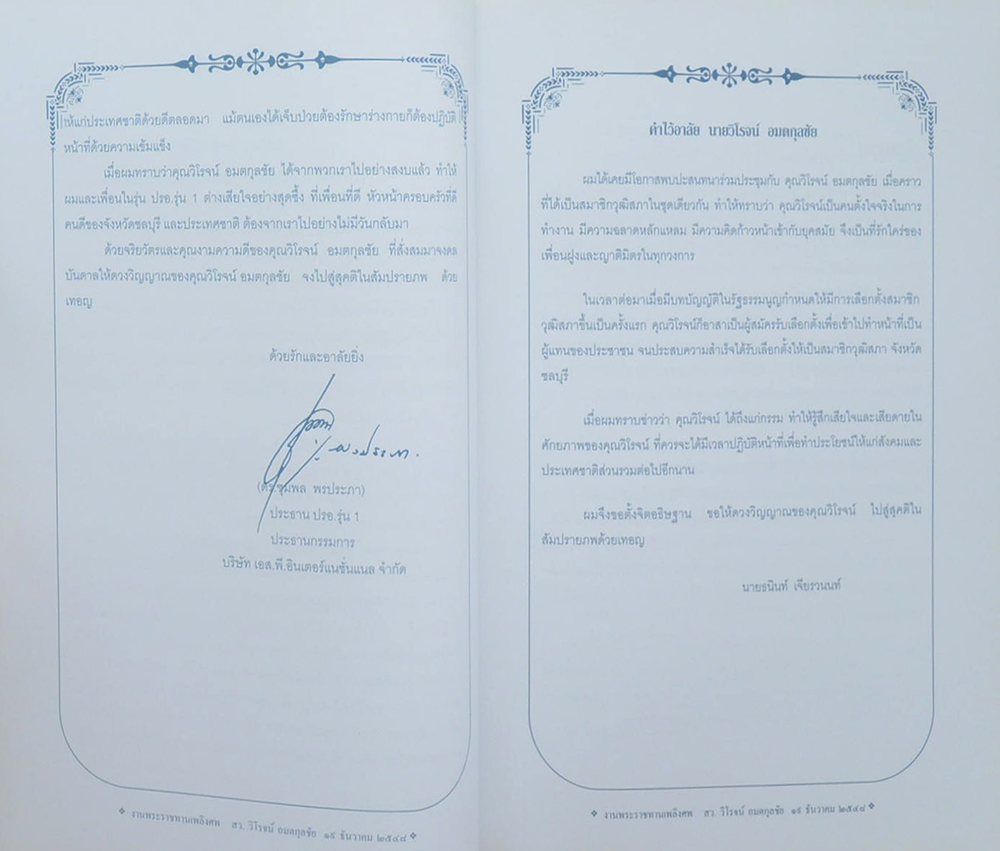 ให้แก่ประเทศชาติด้วยดีตลอดมา แม้ตนเองได้เจ็บป่วยต้องรักษาร่างกายก็ต้องปฏิบัติ
หน้าที่ด้วยความเข้มแข็ง
เมื่อผมทราบว่าคุณวิโรจน์ อมตกุลชัย ได้จากพวกเราไปอย่างสงบแล้ว ทำให้
ผมและเพื่อนในรุ่น ปรอ.รุ่น 1 ต่างเสียใจอย่างสุดซึ้ง ที่เพื่อนที่ดี หัวหน้าครอบครัวที่ดี
คนดีของจังหวัดชลบุรี และประเทศชาติ ต้องจากเราไปอย่างไม่มีวันกลับมา
ด้วยจริยวัตรและคุณงามความดีของคุณวิโรจน์ อมตกุลชัย ที่สั่งสมมาจงดล
บันดาลให้ดวงวิญญาณของคุณวิโรจน์ อมตกุลชัย จงไปสู่สุคติในสัมปรายภพ ด้วย
เทอญ
ด้วยรักและอาลัยยิ่ง
(ดร.ชุมพล พรประภา)
ประธาน ปรอ.รุ่น 1
ประธานกรรมการ
บริษัท เอส.พี.อินเตอร์แนชั่นแนล จำกัด
❖ งานพระราชทานเพลิงศพ สว. วิโรจน์ อมตกุลชัย ๑๙ ธันวาคม ๒๕๔๘ ❖
คำไว้อาลัย นายวิโรจน์ อมตกุลชัย
ผมได้เคยมีโอกาสพบปะสนทนาร่วมประชุมกับ คุณวิโรจน์ อมตกุลชัย เมื่อคราว
ที่ได้เป็นสมาชิกวุฒิสภาในชุดเดียวกัน ทำให้ทราบว่า คุณวิโรจน์เป็นคนตั้งใจจริงในการ
ทำงาน มีความฉลาดหลักแหลม มีความคิดก้าวหน้าเข้ากับยุคสมัย จึงเป็นที่รักใคร่ของ
เพื่อนฝูงและญาติมิตรในทุกวงการ
ในเวลาต่อมาเมื่อมีบทบัญญัติในรัฐธรรมนูญกำหนดให้มีการเลือกตั้งสมาชิก
วุฒิสภาขึ้นเป็นครั้งแรก คุณวิโรจน์ก็อาสาเป็นผู้สมัครรับเลือกตั้งเพื่อเข้าไปทำหน้าที่เป็น
ผู้แทนของประชาชน จนประสบความสำเร็จได้รับเลือกตั้งให้เป็นสมาชิกวุฒิสภา จังหวัด
ชลบุรี
เมื่อผมทราบข่าวว่า คุณวิโรจน์ ได้ถึงแก่กรรม ทำให้รู้สึกเสียใจและเสียดายใน
ศักยภาพของคุณวิโรจน์ ที่ควรจะได้มีเวลาปฏิบัติหน้าที่เพื่อทำประโยชน์ให้แก่สังคมและ
ประเทศชาติส่วนรวมต่อไปอีกนาน
ผมจึงขอตั้งจิตอธิษฐาน ขอให้ดวงวิญญาณของคุณวิโรจน์ ไปสู่สุคติใน
สัมปรายภพด้วยเทอญ
นายธนินท์ เจียรวนนท์
❖ งานพระราชทานเพลิงศพ สว. วิโรจน์ อมตกุลชัย ๑๙ ธันวาคม ๒๕๔๘ ❖